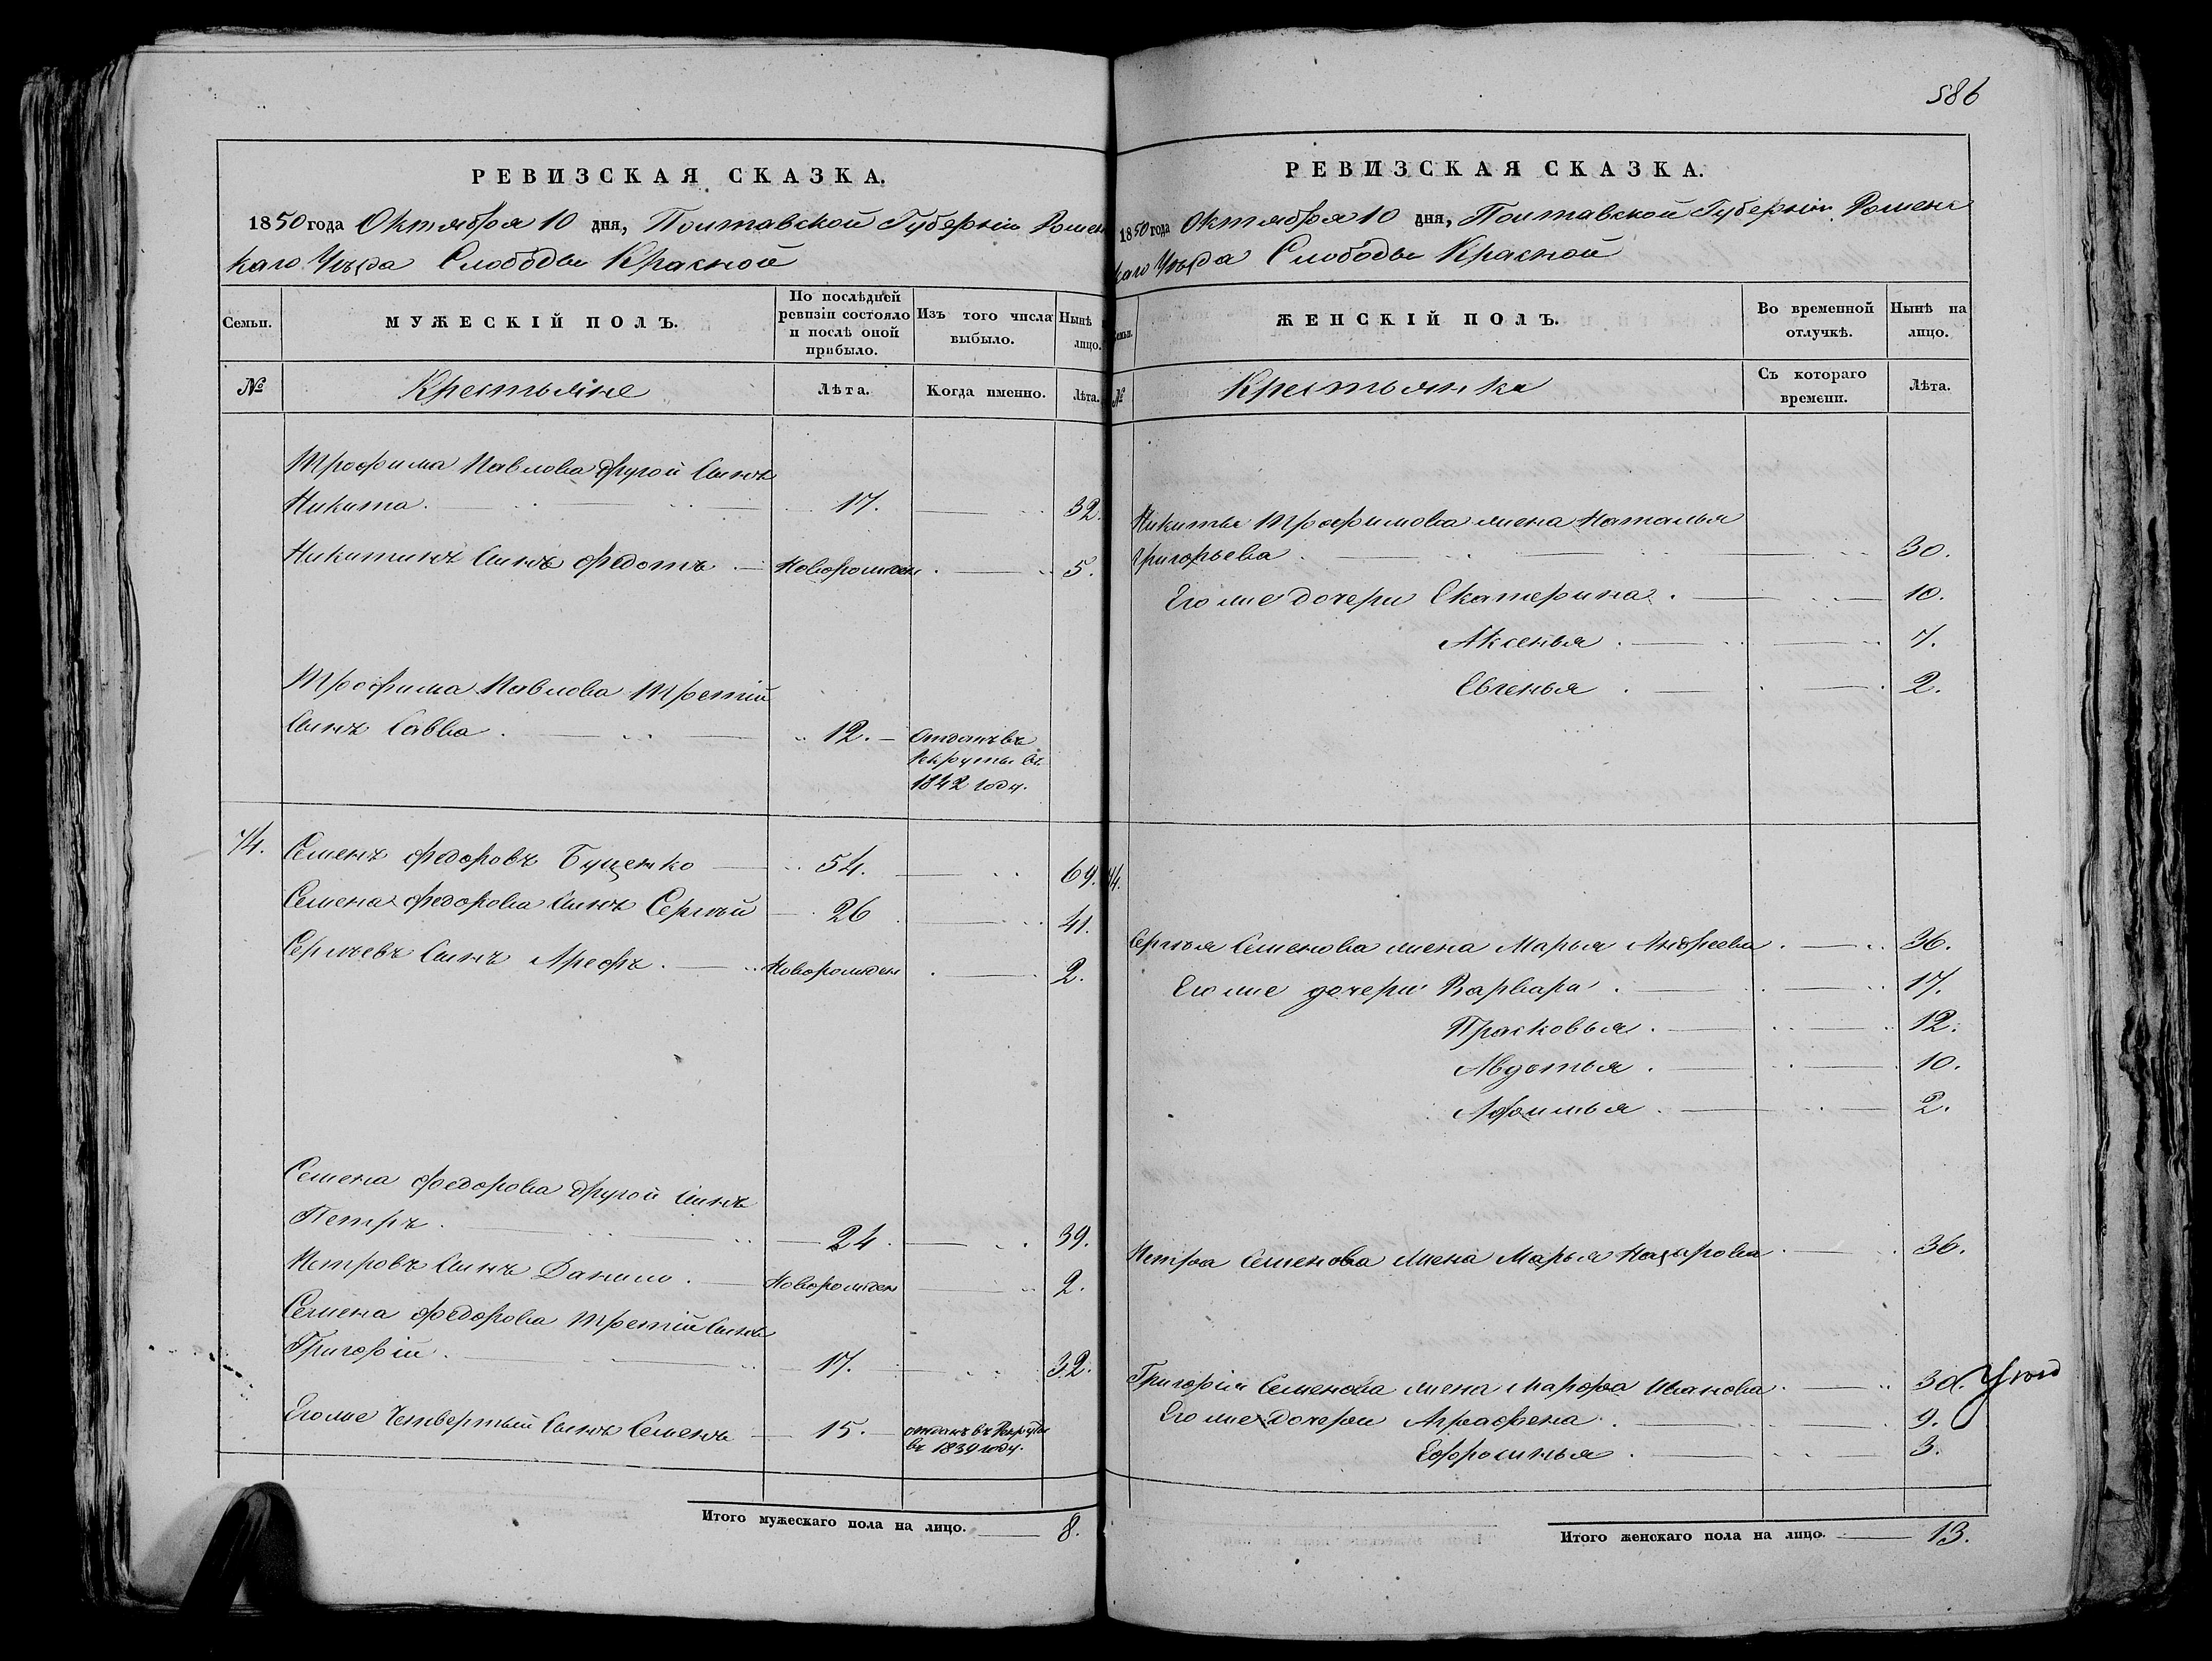 РЕВИЗСКАЯ СКАЗКА.
1850 года Октября 10 дня, Полтавской Губерніи Ромен
каго Уѣзда Слободы Красной
Семьи.
МУЖЕСКІЙ ПОЛЪ.
По послѣдней ревизіи состояло и послѣ оной прибыло.
Изъ того числа выбыло.
Нынѣ на лицо.
№
Крестьяне
Лѣта.
Когда именно.
Лѣта.
Трофима Павлова другой Сынъ
Никита. 17. 32.
Никитинъ Сынъ Федотъ Новорожден 5.
Трофима Павлова Третій
Сынъ Савва 12. Отданъ въ
Рекруты въ
1842 году.
74. Семенъ Федоровъ Буценко 54. 69.
Семена Федорова Сынъ Сергѣй 26 41.
Сергѣевъ Сынъ Арефъ. Новорожден 2.
Семена Федорова другой Сынъ
Петръ. 24. 39.
Петровъ Сынъ Данило. Новорожден 2.
Семена Федорова Третій Сынъ
Григорій. 17. 32.
Его же Четвертый Сынъ Семенъ 15. отданъ въ Рекруты
въ 1839 году.
Итого мужескаго пола на лицо. 8.
586
РЕВИЗСКАЯ СКАЗКА.
1850 года Октября 10 дня, Полтавской Губерніи Роменс
каго Уѣзда Слободы Красной
Семьи.
ЖЕНСКІЙ ПОЛЪ.
Во временной отлучкѣ.
Нынѣ на лицо.
№
Крестьянки
Съ котораго времени.
Лѣта.
Никиты Трофимова жена Наталья
Григорьева 30.
Его же дочери Екатерина. 10.
Аксенья. 7.
Евгенья 2.
74.
Сергѣя Семенова жена Марья Андреева. 36.
Его же дочери Варвара. 17.
Прасковья. 12.
Авдотья. 10.
Афимья. 2.
Петра Семенова Жена Марья Назарова 36.
Григорія Семенова жена Марфа Иванова. 30.
Его же дочери Аграфена. 9.
Ефросинья. 3.
Итого женскаго пола на лицо. 13.